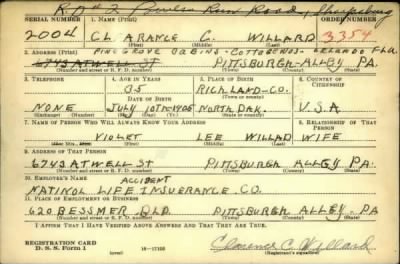 R.D #2 Powers Run Road, Sharpsburg
SERIAL NUMBER 1. NAME (Print) ORDER NUMBER
2004 CLARANCE C. WILLARD 3354
(First) (Middle) (Last)
PINEGROVE CABINS - COTTAGENO5 - FLA.
2. ADDRESS (Print)
6743 ATWELL ST PITTSBURGH ALLEY PA.
(Number and street or R. F. D. number) (Town) (County) (State)
3. TELEPHONE 4. AGE IN YEARS 5. PLACE OF BIRTH 6. COUNTRY OF CITIZENSHIP
35 RICHLAND-CO.
DATE OF BIRTH (Town or county)
NONE JULY 10TH-1905 NORTH DAK. U.S.A
(Exchange) (Number) (Mo.) (Day) (Yr.) (State or country)
7. NAME OF PERSON WHO WILL ALWAYS KNOW YOUR ADDRESS 8. RELATIONSHIP OF THAT PERSON
VIOLET LEE WILLAD WIFE
(Mr., Mrs., Miss) (First) (Middle) (Last)
9. ADDRESS OF THAT PERSON
6743 ATWELL ST PITTSBURGH ALLEY PA.
(Number and street or R. F. D. number) (Town) (County) (State)
10. EMPLOYER'S NAME
ACCIDENT
NATINOL LIFE INSUERANCE CO.
11. PLACE OF EMPLOYMENT OR BUSINESS
620 BESSMER BLD. PITTSBURGH ALLEY. PA
(Number and street or R. F. D. number) (Town) (County) (State)
I AFFIRM THAT I HAVE VERIFIED ABOVE ANSWERS AND THAT THEY ARE TRUE.
REGISTRATION CARD
D. S. S. Form 1 16-17105 Clarence C. Willard
(Registrant's signature)